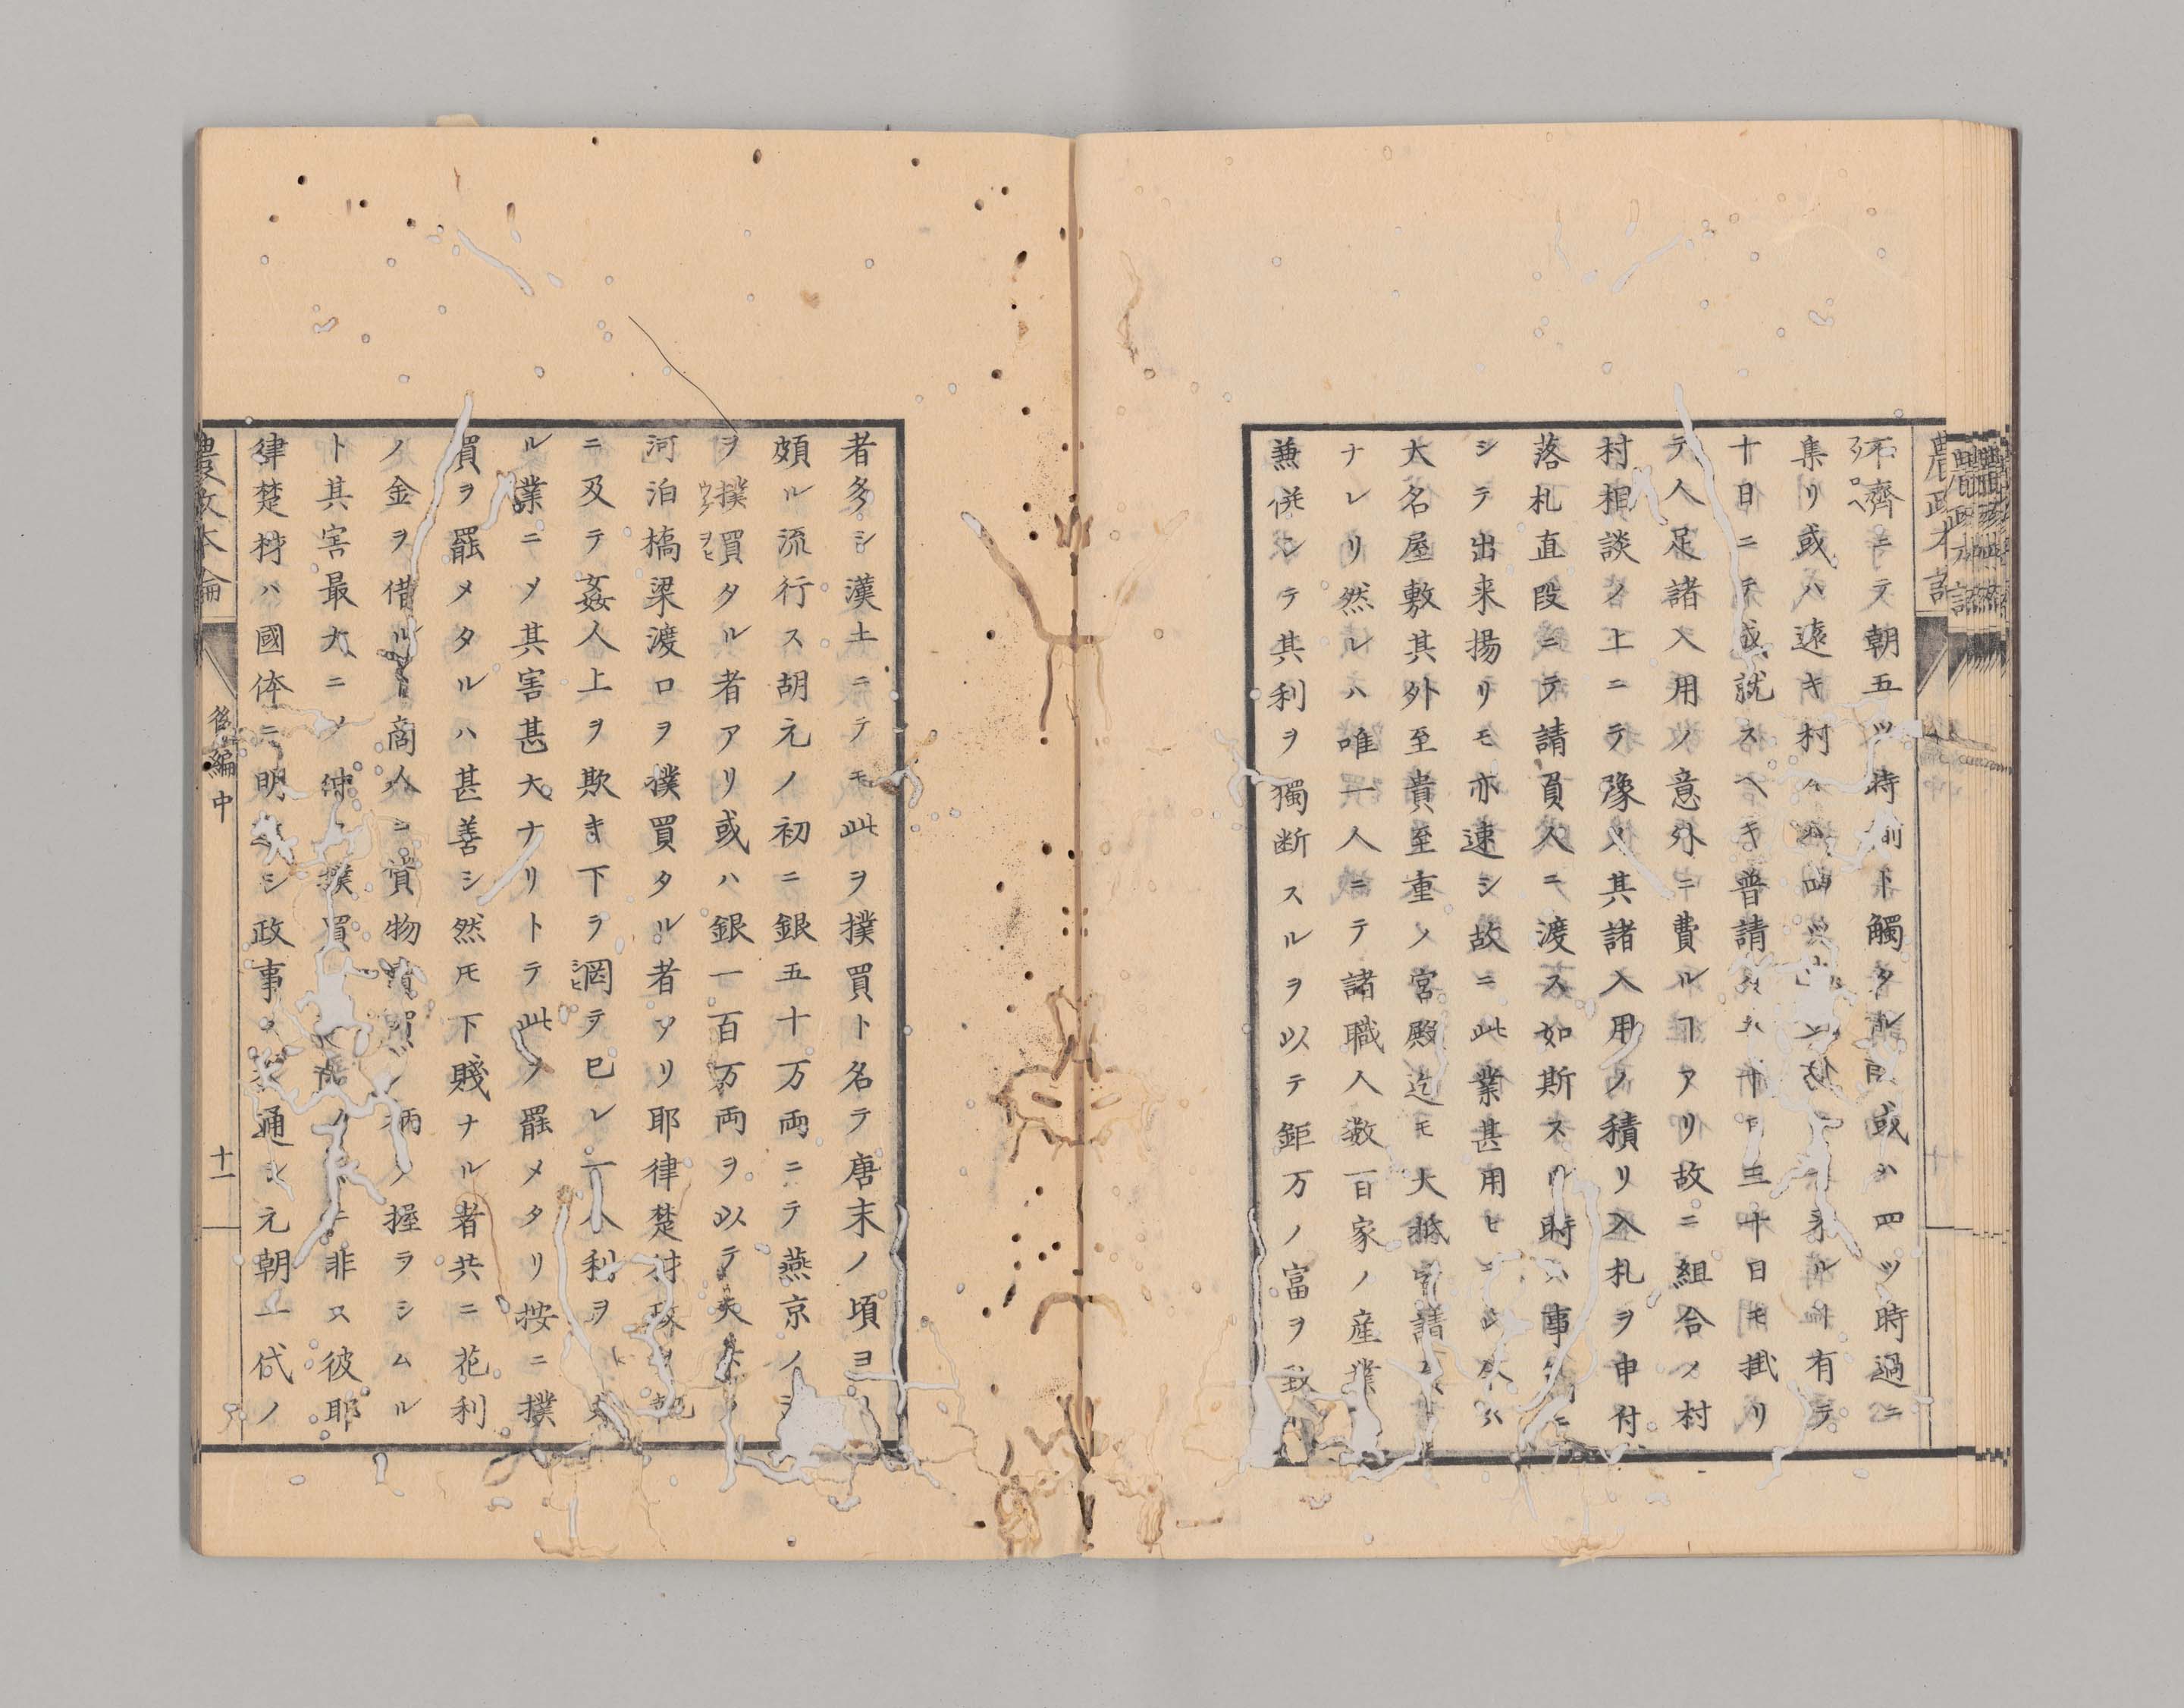 不齊ニテ朝五ツ時前ト觸タル 或ハ四ツ時過ニ
集リ或ハ遠キ村 有テ
十日ニテ成就スヘキ普請 三十日モ掛リ
テ人足諸入用ノ意外ニ費ルヿアリ故ニ組合ノ村
村相談ノ上ニテ豫メ其諸入用ノ積リ入札ヲ申付
落札直段ニテ請負人ニ渡ス如斯スル時ハ事
シテ出来揚リモ亦速シ故ニ此業甚用ヒ
大名屋敷其外至貴至重ノ宮殿迄モ大抵 請
ナレリ然レハ唯一人ニテ諸職人数百家ノ産業
兼併シテ其利ヲ獨断スルヲ以テ鉅万ノ富ヲ致
者多シ漢土ニテモ此ヲ撲買ト名テ唐末ノ頃ヨ
頗ル流行ス胡元ノ初ニ銀五十万両ニテ燕京ノ
ヲ撲買タル者アリ或ハ銀一百万両ヲ以テ天
河泊橋梁渡口ヲ撲買タル者アリ耶律楚材
ニ及テ姦人上ヲ欺キ下ヲ罔テ已レ一人利ヲ
ル業ニメ其害甚大ナリトテ此ヲ罷メタリ按ニ撲
買ヲ罷メタルハ甚善シ然モ下賤ナル者共ニ花利
ノ金ヲ借ル 商人ニ質物 ノ柄ノ握ヲシムル
ト其害最大ニメ 撲買 ニ非ス彼耶
律楚材ハ國体ニ明 シ政事ニ 通シ元朝一代ノ
農政本論
後編中
十一